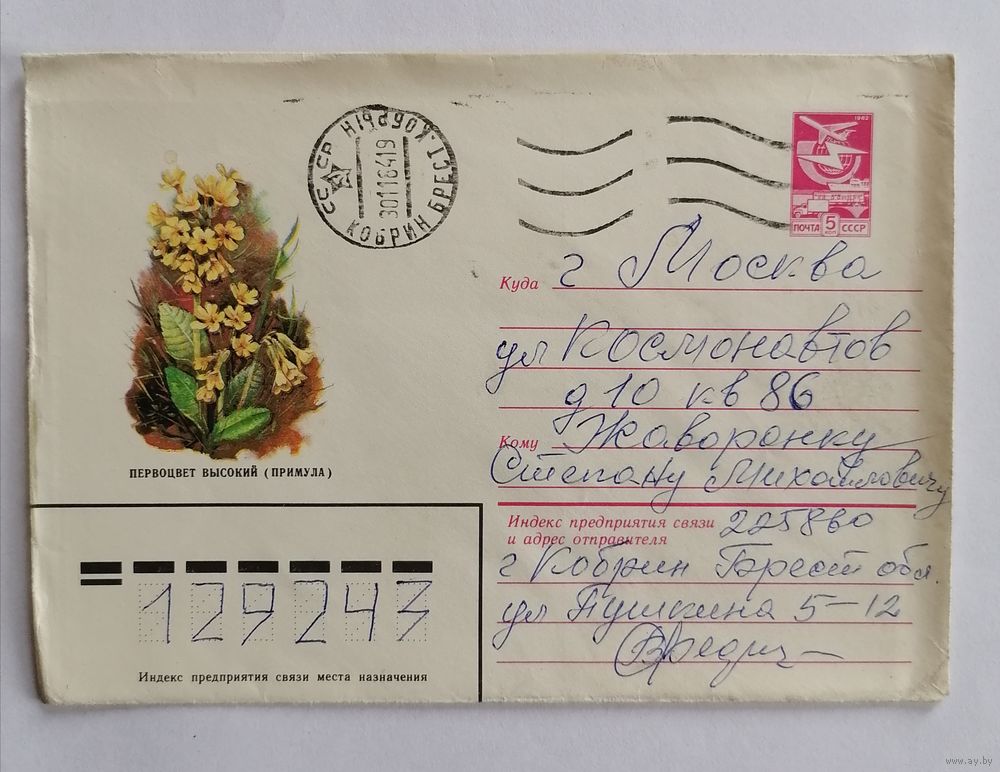 СССР КОБРЫН БРЕСТ.
301184 19
КОБРИН
1982
ПОЧТА 5 КОП СССР
Куда г Москва
ул Космонавтов
д 10 кв 86
Кому Жаворонку
Степану Михайловичу
ПЕРВОЦВЕТ ВЫСОКИЙ (ПРИМУЛА)
Индекс предприятия связи 225860
и адрес отправителя
г Кобрин Брест обл.
ул Пушкина 5-12
129243
Индекс предприятия связи места назначения
www.ay.by